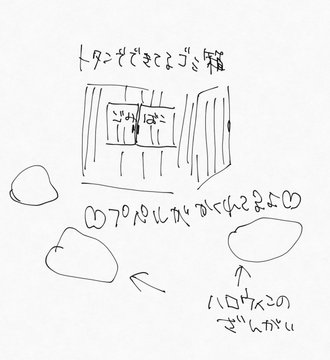 トタンでできてるゴミ箱
ごみ ばこ
♡プペルがかくれてるよ♡
ハロウィンの
ざんがい